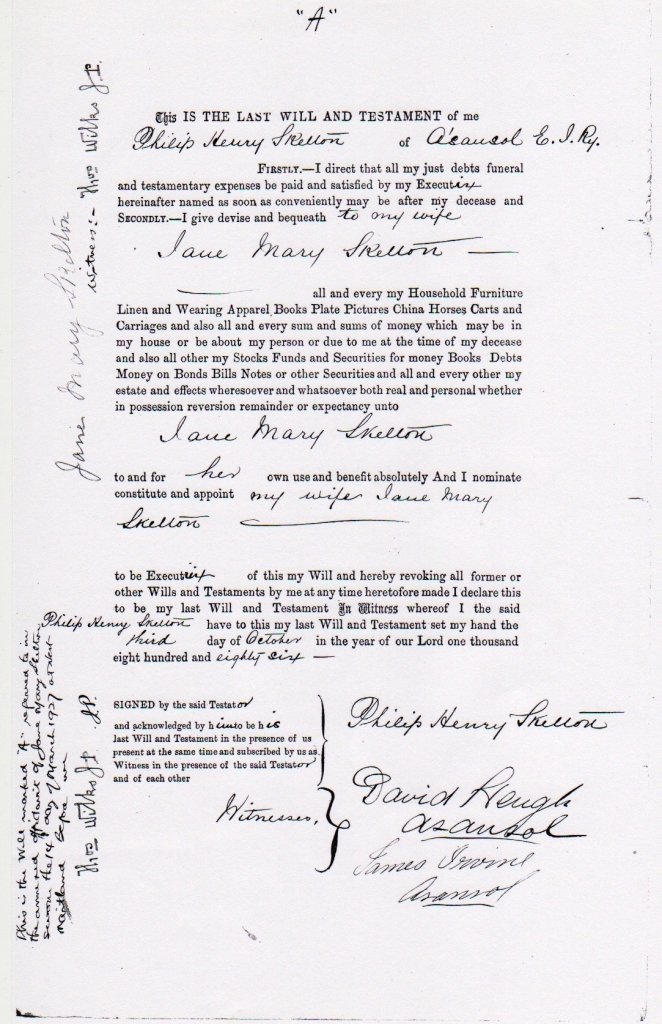 "A"
This IS THE LAST WILL AND TESTAMENT of me
Philip Henry Skelton of Asansol E. I. Ry.
FIRSTLY.—I direct that all my just debts funeral
and testamentary expenses be paid and satisfied by my Executrix
hereinafter named as soon as conveniently may be after my decease and
SECONDLY.—I give devise and bequeath to my wife
Jane Mary Skelton —
all and every my Household Furniture
Linen and Wearing Apparel Books Plate Pictures China Horses Carts and
Carriages and also all and every sum and sums of money which may be in
my house or be about my person or due to me at the time of my decease
and also all other my Stocks Funds and Securities for money Books Debts
Money on Bonds Bills Notes or other Securities and all and every other my
estate and effects wheresoever and whatsoever both real and personal whether
in possession reversion remainder or expectancy unto
Jane Mary Skelton
to and for her own use and benefit absolutely And I nominate
constitute and appoint my wife Jane Mary
Skelton
to be Executrix of this my Will and hereby revoking all former or
other Wills and Testaments by me at any time heretofore made I declare this
to be my last Will and Testament In Witness whereof I the said
Philip Henry Skelton have to this my last Will and Testament set my hand the
third day of October in the year of our Lord one thousand
eight hundred and eighty six —
SIGNED by the said Testator
and acknowledged by him to be his
last Will and Testament in the presence of us
present at the same time and subscribed by us as
Witness in the presence of the said Testator
and of each other
Witnesses,
Philip Henry Skelton
David Heugh
Asansol
James Irvine
Asansol
Jane Mary Skelton
Witness:- Thos Wilks J.P.
This is the Will marked "A" referred to in
the annexed affidavit of Jane Mary Skelton
sworn the 14 day of March 1927 at West
Maitland Before me
Thos Wilks JP J.P.